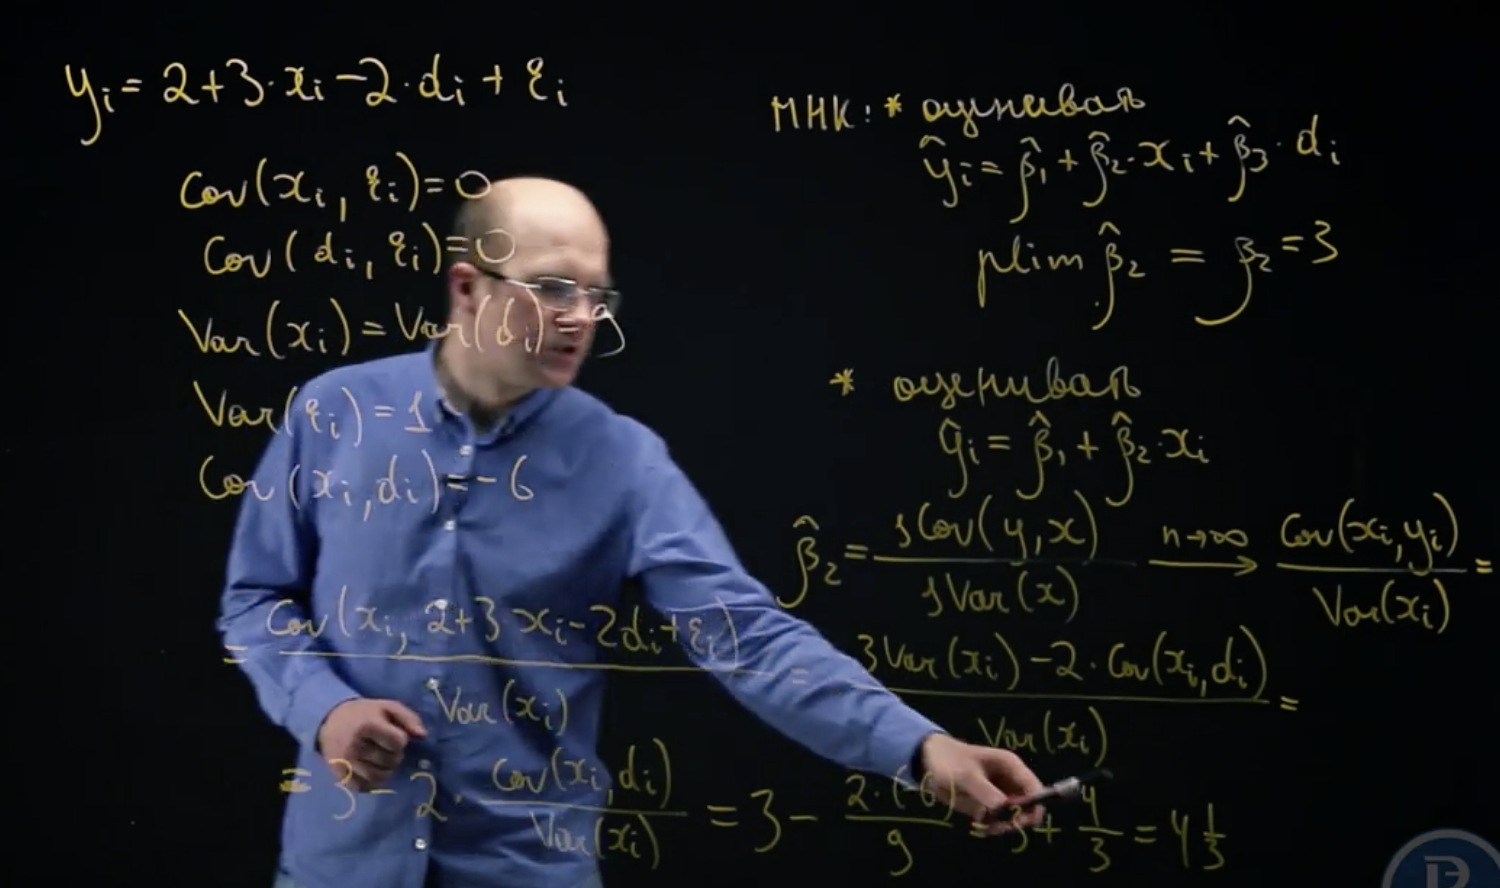 yᵢ = 2 + 3·xᵢ − 2·dᵢ + εᵢ
Cov(xᵢ, εᵢ) = 0
Cov(dᵢ, εᵢ) = 0
Var(xᵢ) = Var(dᵢ) = 9
Var(εᵢ) = 1
Cov(xᵢ, dᵢ) = −6
МНК: * оценивать
ŷᵢ = β̂₁ + β̂₂·xᵢ + β̂₃·dᵢ
plim β̂₂ = β₂ = 3
* оценивать
ŷᵢ = β̂₁ + β̂₂·xᵢ
β̂₂ = sCov(y, x) / sVar(x) n→∞ → Cov(xᵢ, yᵢ) / Var(xᵢ) =
= Cov(xᵢ, 2+3xᵢ−2dᵢ+εᵢ) / Var(xᵢ) = (3Var(xᵢ) − 2·Cov(xᵢ, dᵢ)) / Var(xᵢ) =
= 3 − 2·Cov(xᵢ, dᵢ) / Var(xᵢ) = 3 − 2·(−6) / 9 = 3 + 4/3 = 4 1/3